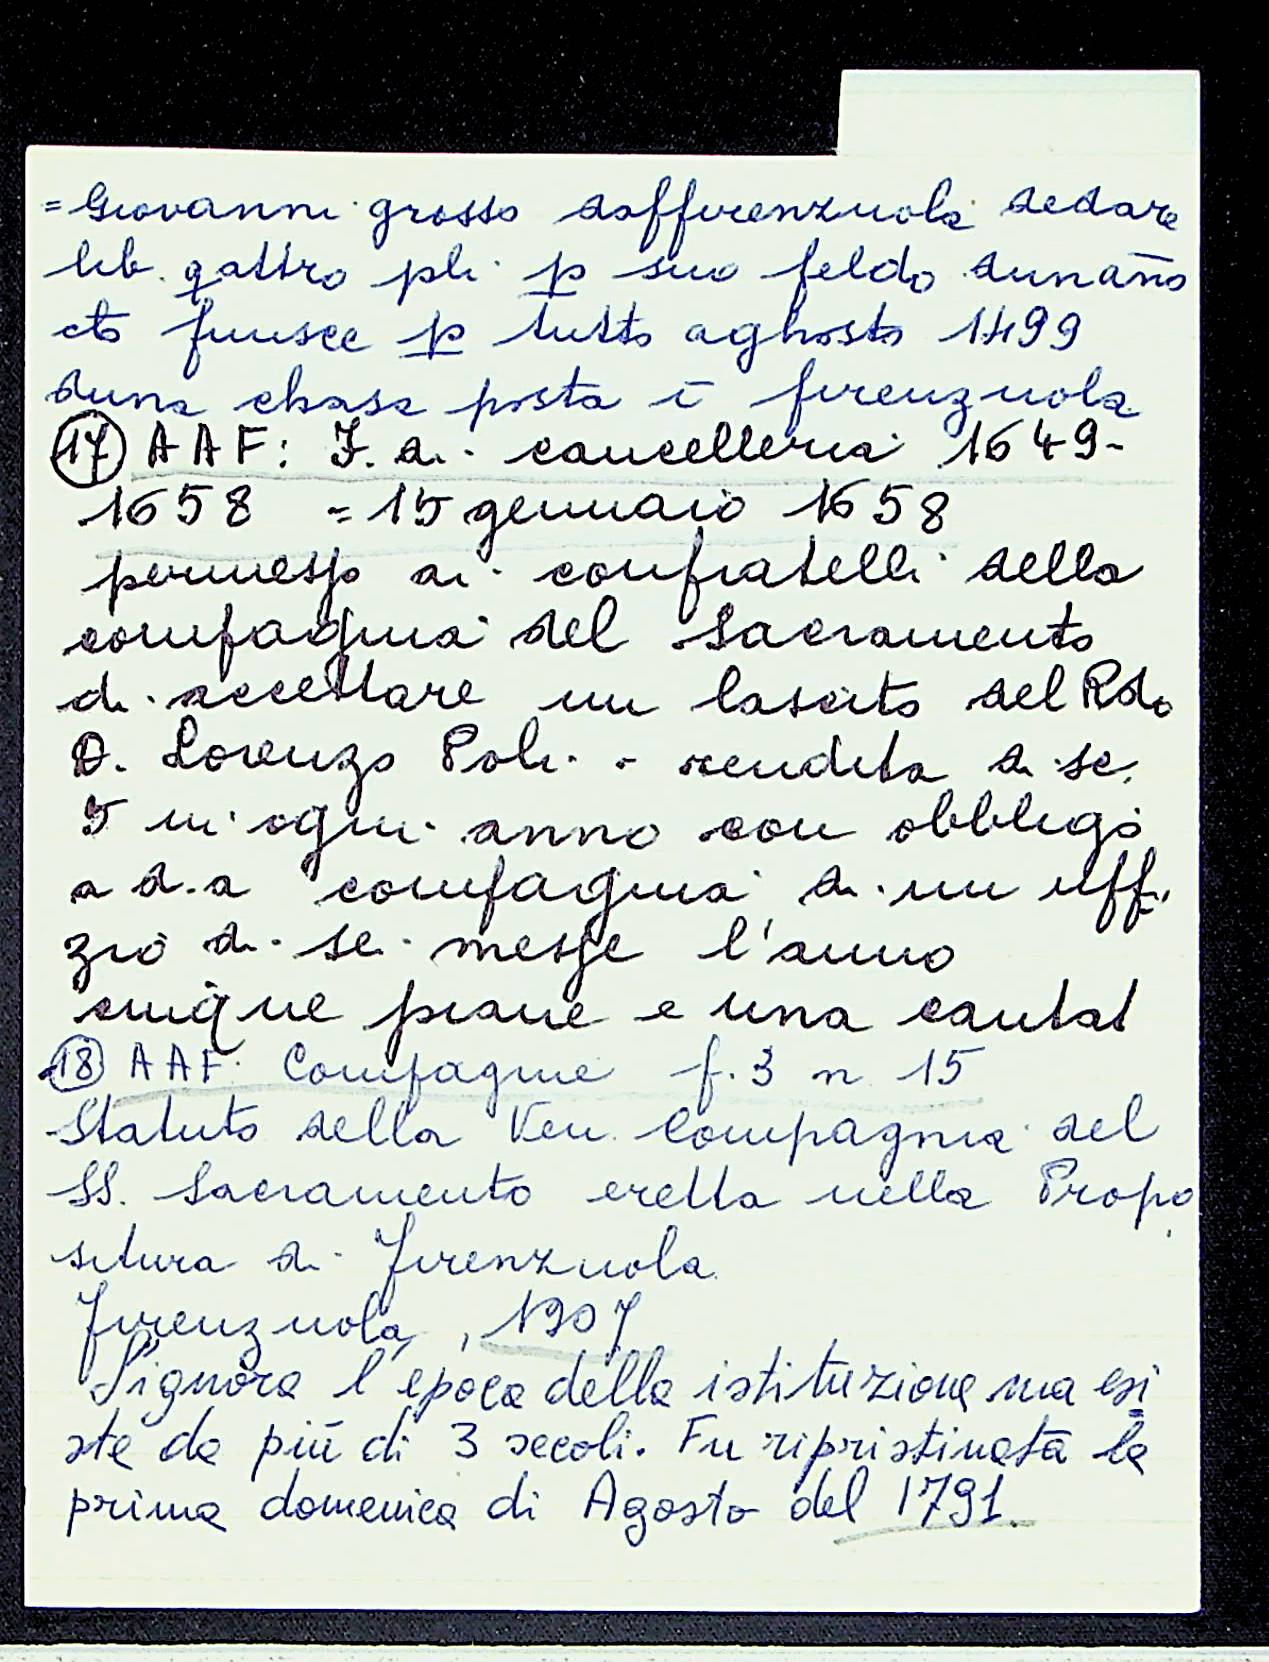 = Giovanni grosso daffirenzuola dedare
lib. qattro pli p suo feldo dunan̄o
cto finisce p tutto aghosto 1499
duna chasa posta ī firenzuola
(17) AAF: F. a. cancelleria 1649-
1658 = 15 gennaio 1658
permesso ai confratelli della
compagnia del Sacramento
di accettare un lascito del Rdo
D. Lorenzo Poli - rendita di sc.
5 in ogni anno con obbligo
a d.a compagnia di un uffi
zio di sei messe l'anno
cinque piane e una cantat
(18) AAF: Compagnie f. 3 n 15
Statuto della Ven. Compagnia del
SS. Sacramento eretta nella Propo
situra di Firenzuola
Firenzuola, 1907
S'ignora l'epoca della istituzione ma esi
ste da più di 3 secoli. Fu ripristinata la
prima domenica di Agosto del 1791.